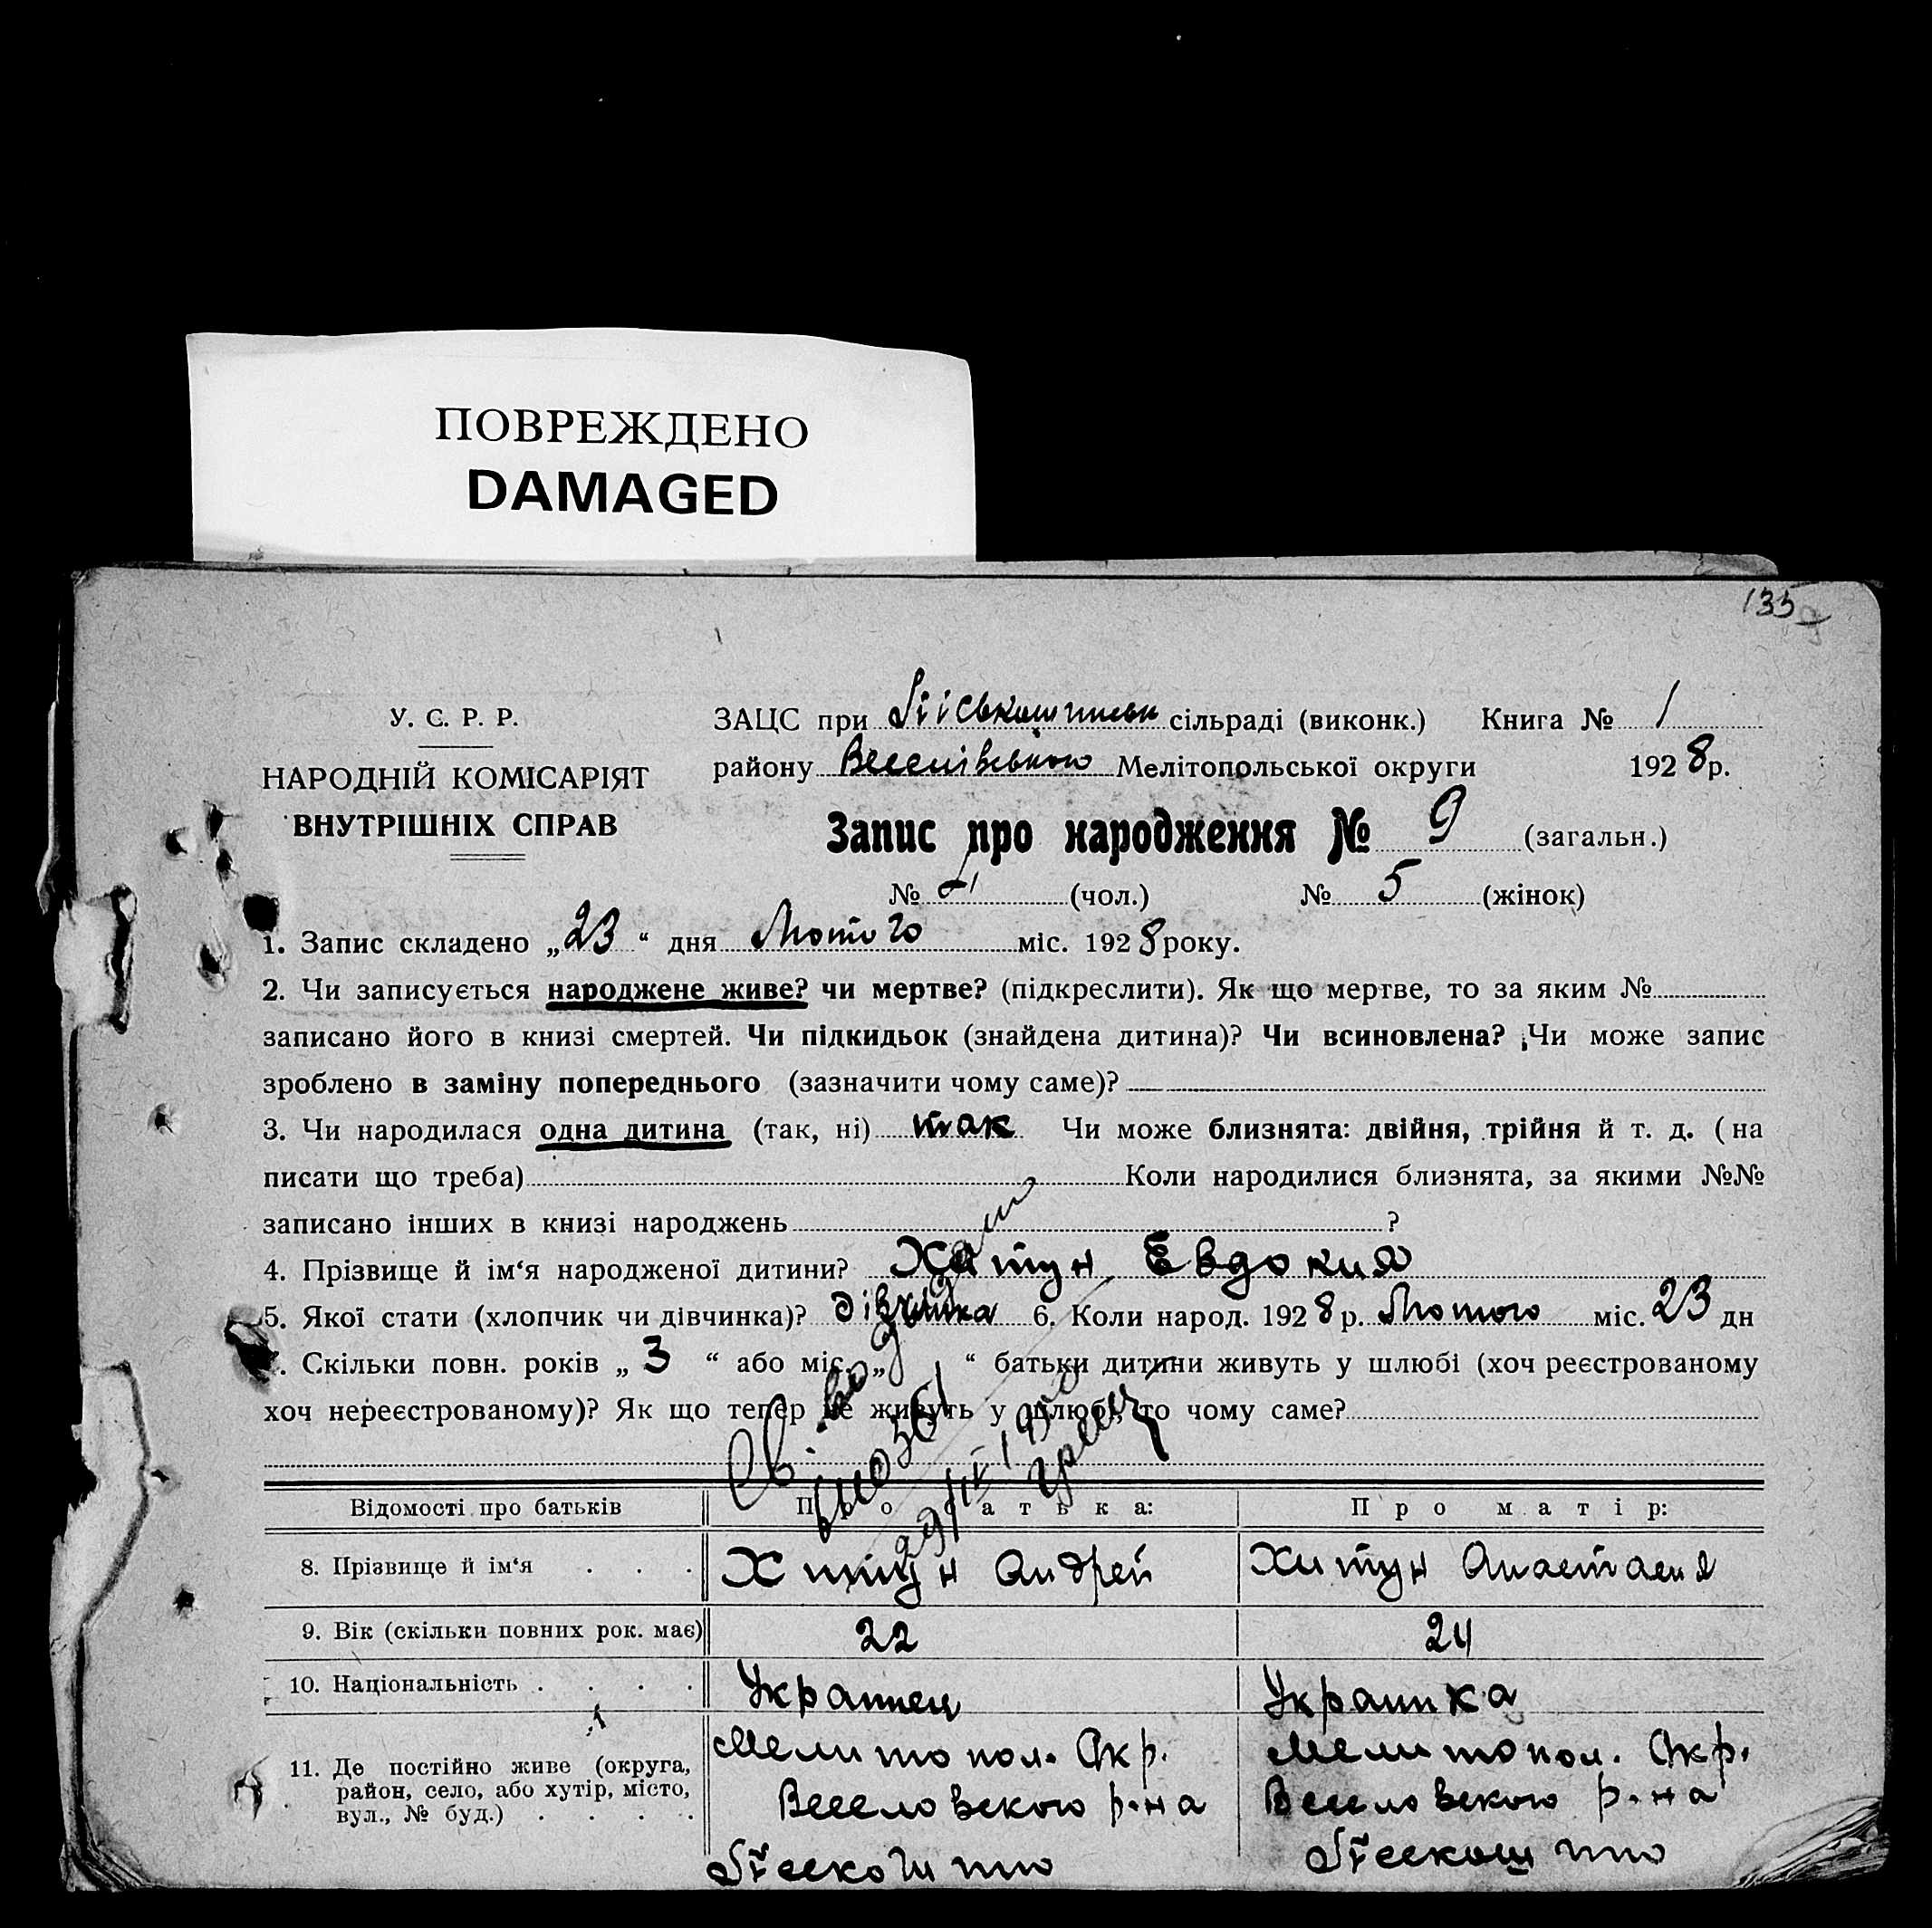 ПОВРЕЖДЕНО
DAMAGED
135
У. С. Р. Р.
НАРОДНІЙ КОМІСАРІЯТ
ВНУТРІШНІХ СПРАВ
ЗАЦС при сільраді (виконк.) Книга № 1
району Веселівського Мелітопольської округи 1928 р.
Запис про народження № 9 (загальн.)
№ (чол.) № 5 (жінок)
1. Запис складено „23“ дня Лютого міс. 1928 року.
2. Чи записується народжене живе? чи мертве? (підкреслити). Як що мертве, то за яким №
записано його в книзі смертей. Чи підкидьок (знайдена дитина)? Чи всиновлена? Чи може запис
зроблено в заміну попереднього (зазначити чому саме)?
3. Чи народилася одна дитина (так, ні) так Чи може близнята: двійня, трійня й т. д. (на
писати що треба) Коли народилися близнята, за якими №№
записано інших в книзі народжень ?
4. Прізвище й ім‘я народженої дитини? Хатун Евдокия
5. Якої стати (хлопчик чи дівчинка)? дівчинка 6. Коли народ. 1928 р. Лютого міс. 23 дн
. Скільки повн. років „ 3 “ або міс. „ “ батьки дитини живуть у шлюбі (хоч реєстрованому
хоч нереєстрованому)? Як що тепер не живуть у шлюбі, то чому саме?
Відомості про батьків Про батька: Про матір:
8. Прізвище й ім‘я . . . Хитун Андрей Хитун Анастасия
9. Вік (скільки повних рок. має) 22 24
10. Національність . . . . Украинец Украинка
11. Де постійно живе (округа, район, село, або хутір, місто, вул., № буд.) . . . .
Мелитопол. Окр. Мелитопол. Окр.
Веселовского р-на Веселовского р-на